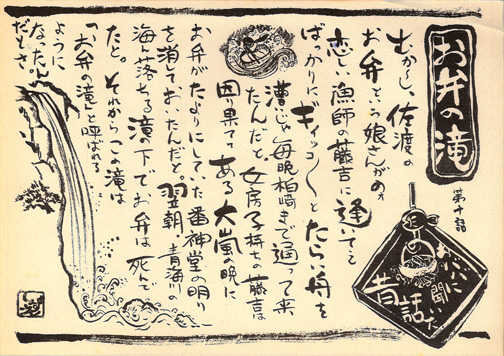 お弁の滝
第十話
に聞いた
昔話
むかーし、佐渡の
お弁という娘さんがのぉ
恋しい漁師の藤吉に逢いてえ
ばっかりにギイッコ〱とたらい舟を
漕じゃ毎晩柏崎まで通って来
たんだと。女房子持ちの藤吉は
困り果てて ある大嵐の晩に
お弁がたよりにしてた番神堂の明り
を消ておいたんだと。翌朝、青海川の
海に落ちる滝の下でお弁は死んで
たと。それからこの滝は
“お弁の滝”と呼ばれる
ように
なったん
だもさ。